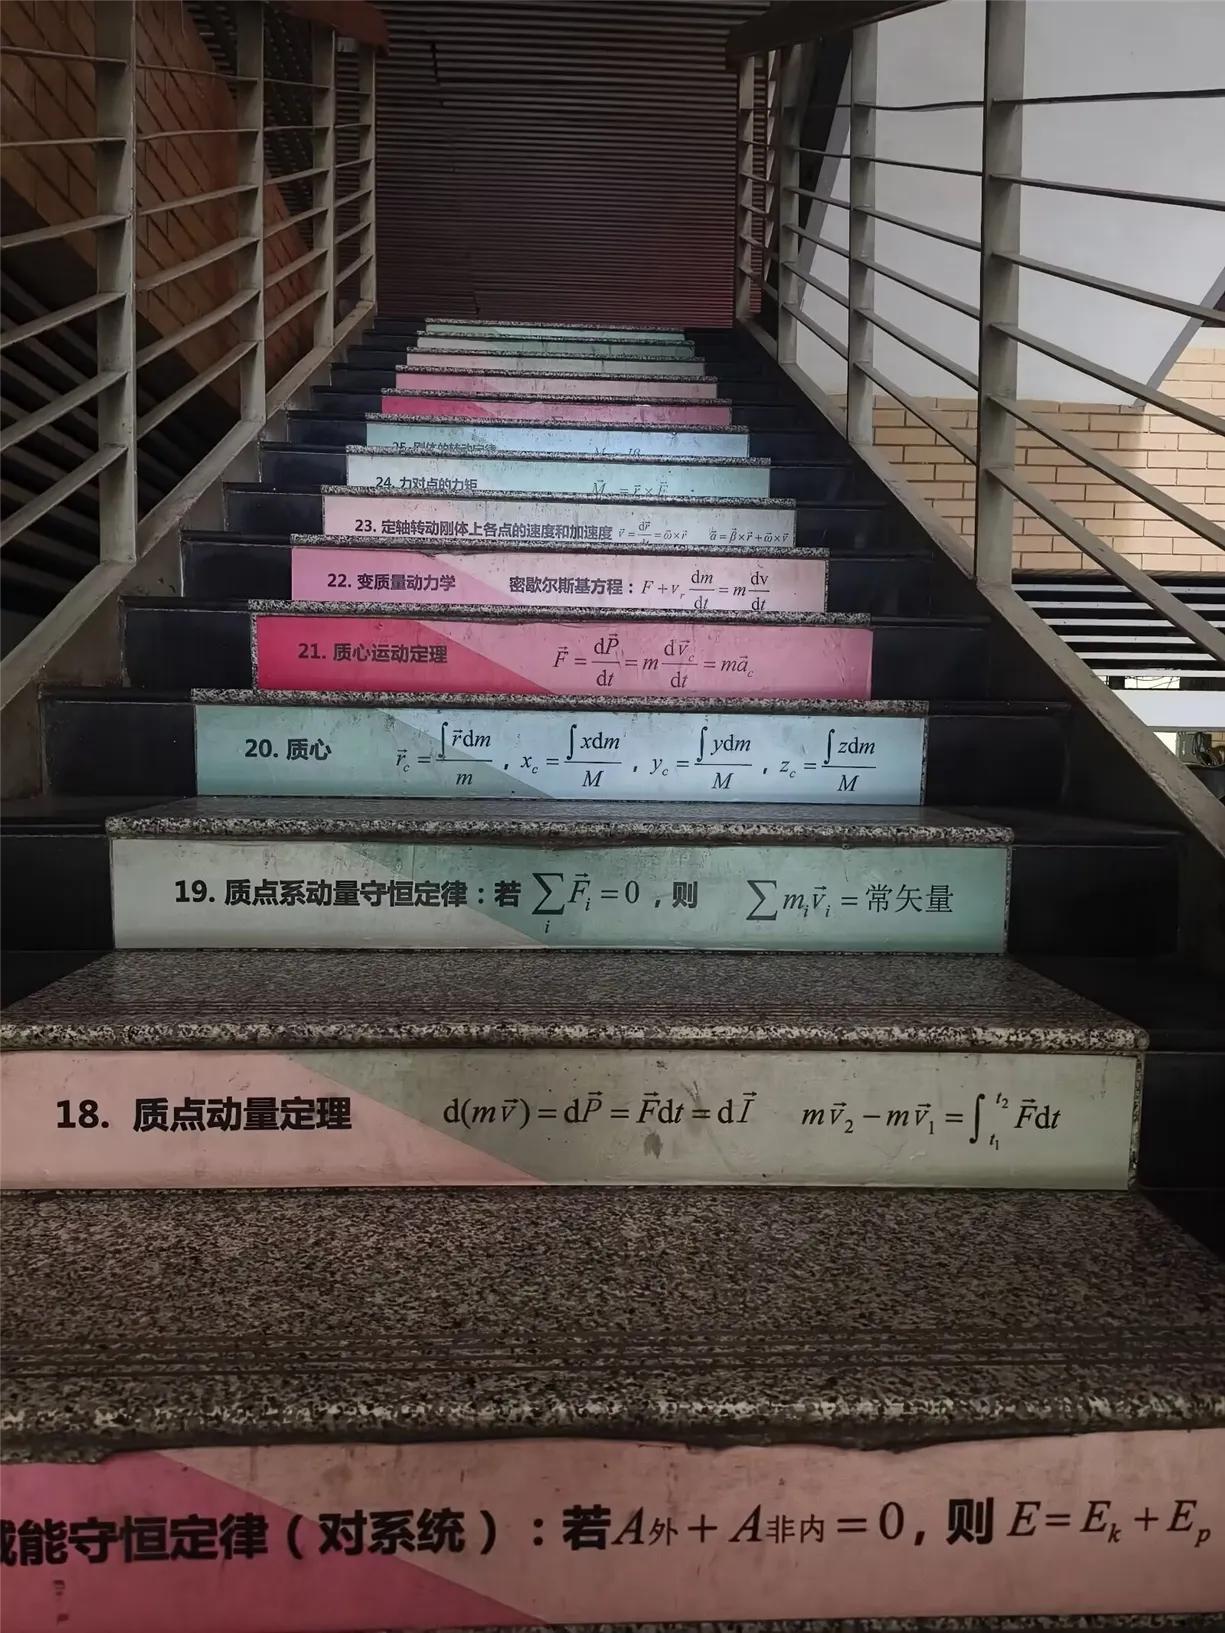 24. 力对点的力矩 M⃗ = r⃗ × F⃗
23. 定轴转动刚体上各点的速度和加速度 v⃗ = dr⃗/dt = ω⃗×r⃗ a⃗ = β⃗×r⃗+ω⃗×v⃗
22. 变质量动力学 密歇尔斯基方程：F + vᵣ dm/dt = m dv/dt
21. 质心运动定理 F⃗ = dP⃗/dt = m dv⃗_c/dt = ma⃗_c
20. 质心 r⃗_c = ∫r⃗dm/m , x_c = ∫xdm/M , y_c = ∫ydm/M , z_c = ∫zdm/M
19. 质点系动量守恒定律：若 ∑_i F⃗_i = 0 ，则 ∑ m_i v⃗_i = 常矢量
18. 质点动量定理 d(mv⃗) = dP⃗ = F⃗dt = dI⃗ mv⃗₂ − mv⃗₁ = ∫_{t₁}^{t₂} F⃗dt
能守恒定律（对系统）：若 A外 + A非内 = 0，则 E = E_k + E_p